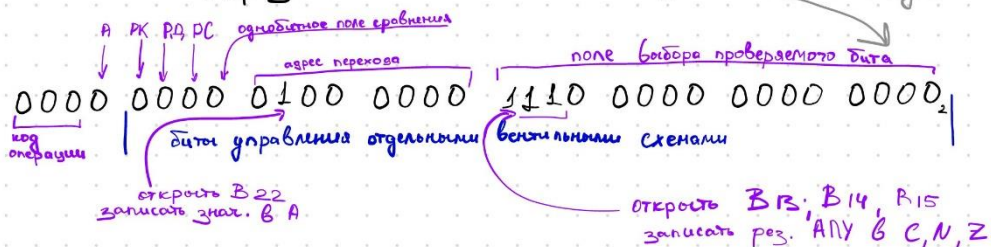 А РК РД РС однобитное поле сравнения
адрес перехода поле выбора проверяемого бита
0000 0000 0100 0000 1110 0000 0000 0000₂
код операции
биты управления отдельными вентильными схемами
открыть В22
записать знач. в А
открыть В13, В14, В15
записать рез. АЛУ в C, N, Z